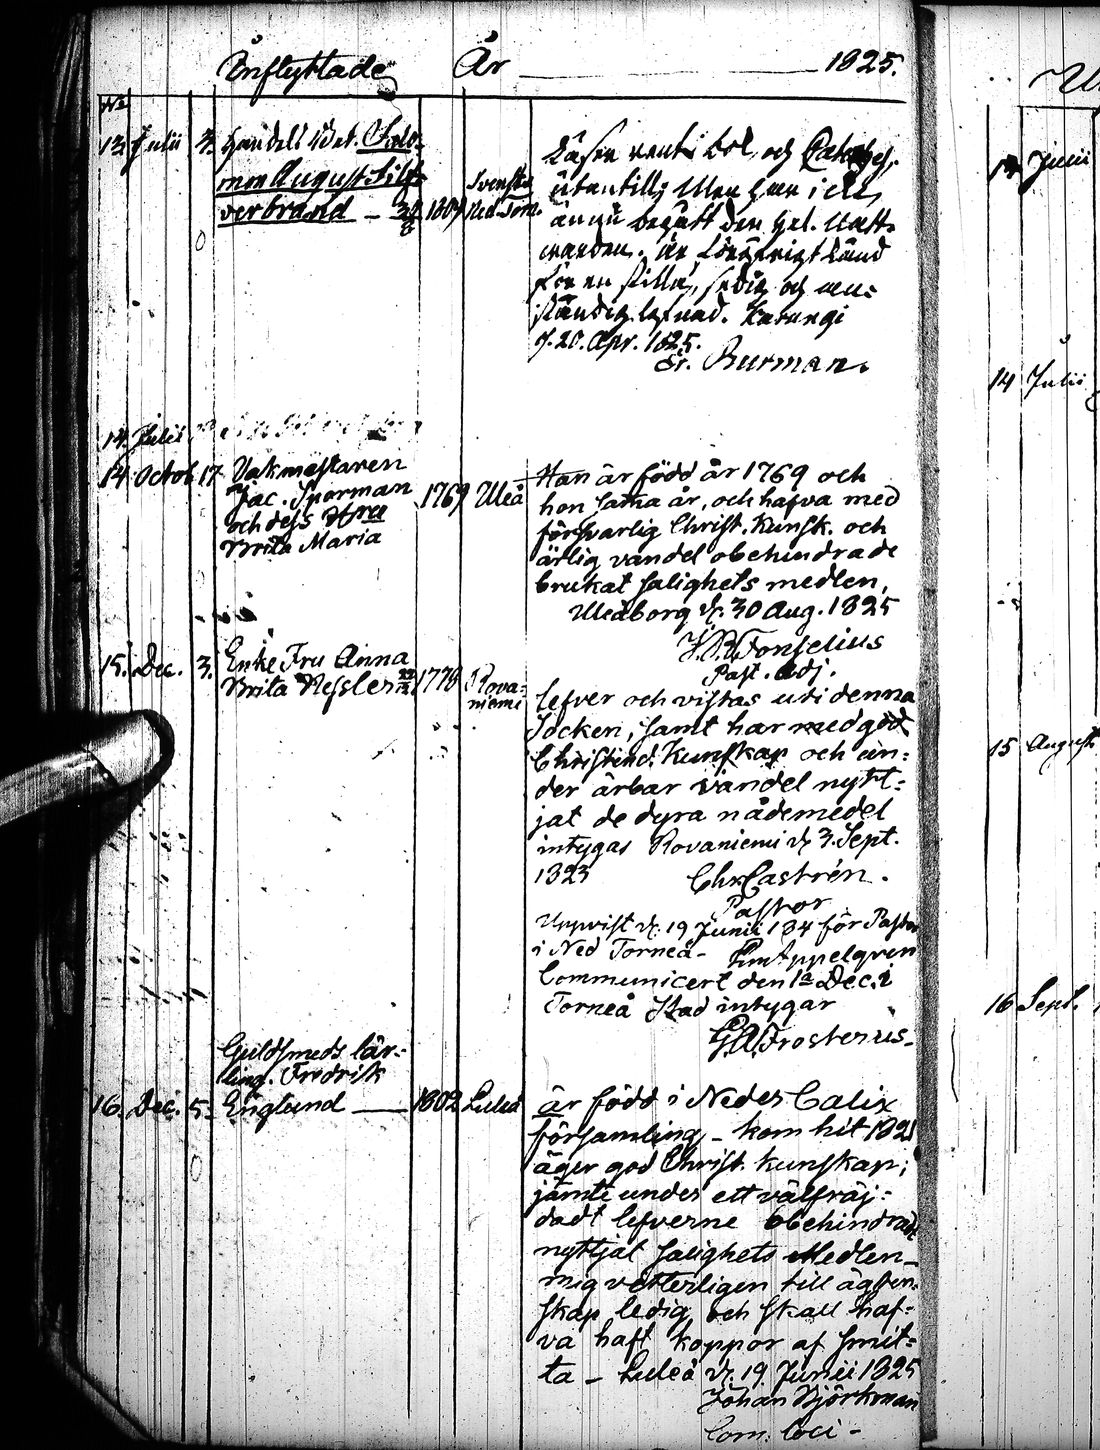 Inflyttade År 1825.
No
13 Julii 4. Handels Bet. Salo-
mon August Silf-
verbrand 1807 Svenska Ned. Torn.
Läser rent i bok, och Cateches.
utantill; Men har icke
ännu begått den Hel. Natt-
varden. är för öfrigt känd
för en stilla, sedig och an-
ständig lefnad. Karungi
d. 20. Apr. 1825.
Er. Burman.
14. Julii
14 Octob 17 Vakmästaren
Jac. Sporman
och dess Hru
Brita Maria
1769 Uleå
Han är född år 1769 och
hon sama år, och hafva med
försvarlig Christ. Kunsk. och
ärlig vandel obehindrade
brukat salighets medlen,
Uleåborg d. 30 Aug. 1825
Tonselius
Past. Adj.
15. Dec. 3. Enke Fru Anna
Brita Nessler 1779 Rova-
niemi
lefver och vistas uti denna
Socken, samt har med god
Christend. Kunskap och un-
der ärbar vandel nytt-
jat de dyra nådemedel
intygas Rovaniemi d. 3. Sept.
1823 Chr Castrén.
Pastor
Uppvist d. 19 Junii 184 för Pastor
i Ned Torneå - Appelgren
Communicert den 1a Dec. i
Torneå Stad intygar
Frosterus.
Guldsmeds lär-
ling. Fredrik
16. Dec. 5. Englund 1802 Luleå
är född i Neder Calix
församling - kom hit 1821
äger god Christ. kunskap;
jämte under ett välfräj-
dadt lefverne obehindrad
nyttjat salighets Medlen -
mig vetterligen till ägten-
skap ledig, och skall haf-
va haft koppor af smit-
ta - Luleå d. 19 Junii 1825
Johan Björkman
Com. loci -
Junii
14 Julii
15 Augusti
16 Sept.